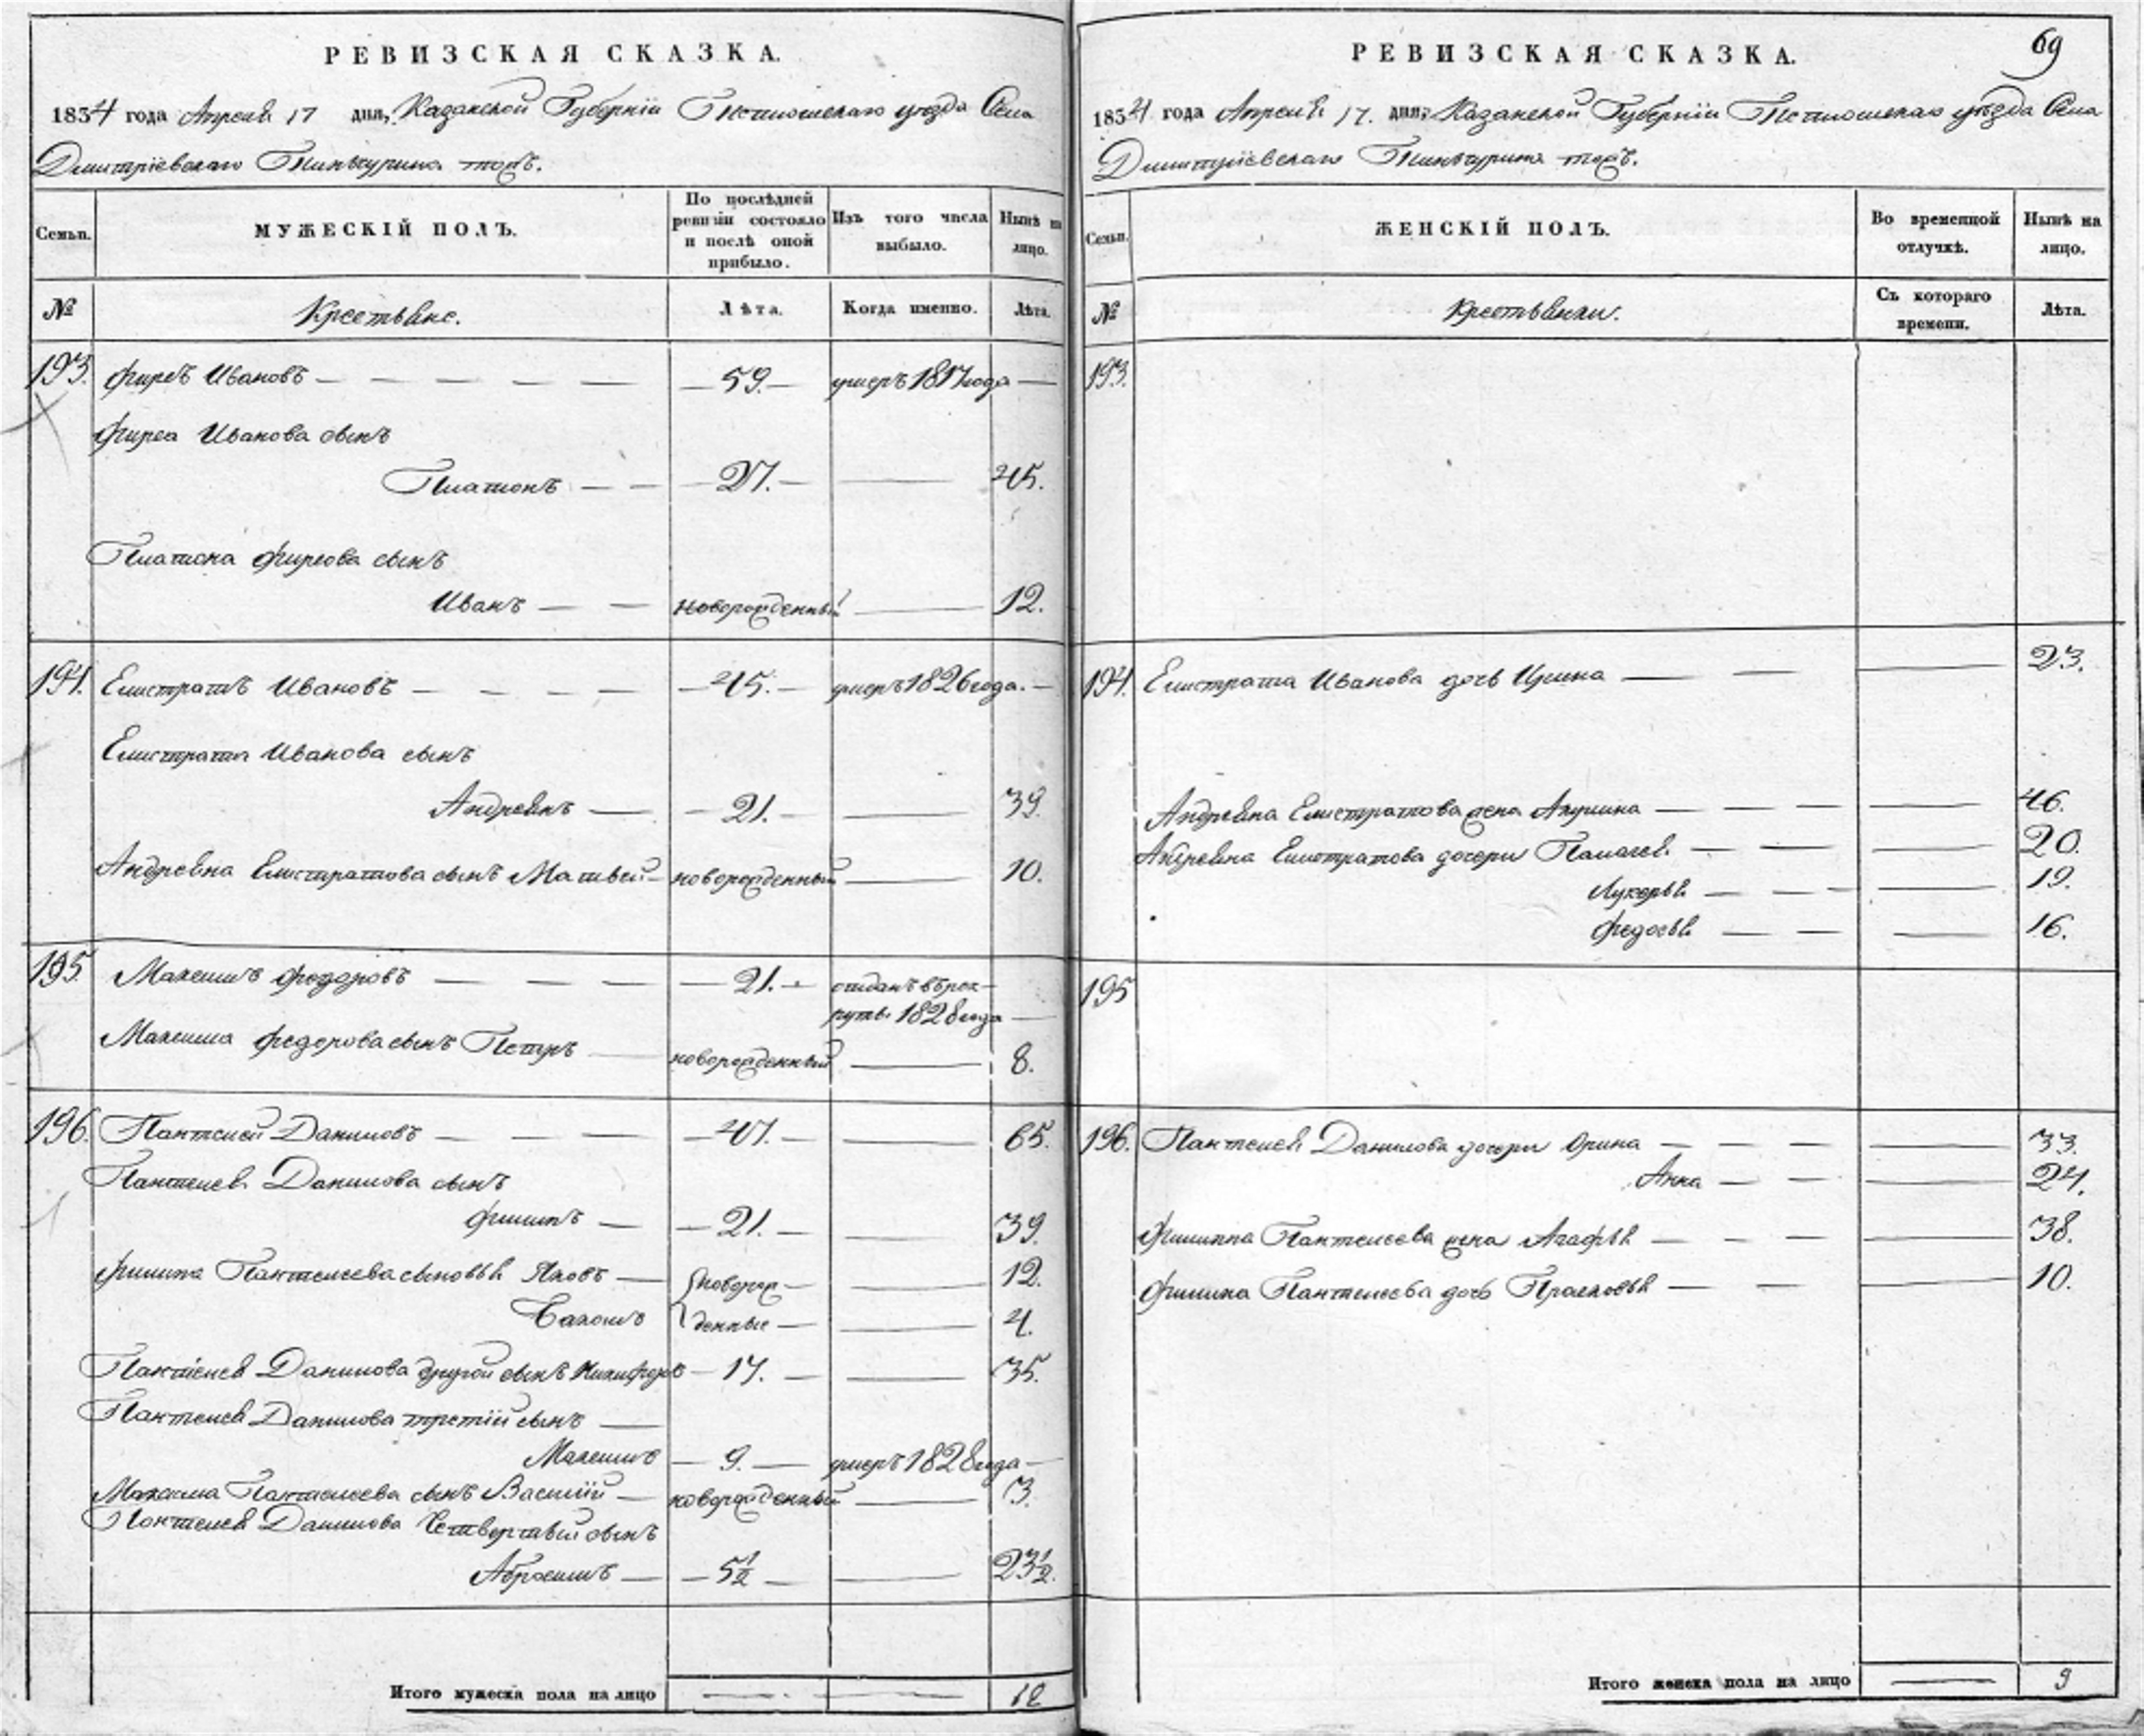 РЕВИЗСКАЯ СКАЗКА.
1834 года Апреля 17 дня, Казанской Губернiи Тетюшскаго уезда Села
Дмитрiевскаго Тинчурина тожъ.
Семьи.
МУЖЕСКIЙ ПОЛЪ.
По послѣдней ревизiи состояло и послѣ оной прибыло.
Изъ того числа выбыло.
Нынѣ на лицо.
№
Крестьяне.
Лѣта.
Когда именно.
Лѣта.
193. Фирсъ Ивановъ 59. умеръ 1817 года
Фирса Иванова сынъ
Платонъ 27. 45.
Платона Фирсова сынъ
Иванъ новорожденный 12.
194. Елистратъ Ивановъ 45. умеръ 1826 года.
Елистрата Иванова сынъ
Андреянъ 21. 39.
Андреяна Елистратова сынъ Матвей новорожденный 10.
195. Максимъ Федоровъ 21. отданъ в рек-
руты 1828 года
Максима Федорова сынъ Петръ новорожденный 8.
196. Пантелей Даниловъ 47. 65.
Пантелея Данилова сынъ
Филипъ 21. 39.
Филипа Пантелеева сыновья Яковъ новорож- 12.
денные 4.
Пантелея Данилова другой сынъ Никифоръ 17. 35.
Пантелея Данилова третiй сынъ
Максимъ 9. умеръ 1828 года
Максима Пантелеева сынъ Василiй новорожденный 3.
Пантелея Данилова Четвертый сынъ
Абросимъ 5 1/2 23 1/2.
Итого мужеска пола на лицо 12
69
РЕВИЗСКАЯ СКАЗКА.
1834 года Апреля 17. дня, Казанской Губернiи Тетюшскаго уезда Села
Дмитрiевскаго Тинчурина тожъ.
Семьи.
ЖЕНСКIЙ ПОЛЪ.
Во временной отлучкѣ.
Нынѣ на лицо.
№
Крестьянки.
Съ котораго времени.
Лѣта.
193.
194. Елистрата Иванова дочь Ирина 23.
Андреяна Елистратова жена Акулина 46.
Андреяна Елистратова дочери Палагея 20.
Лукерья 19.
Федосья 16.
195
196. Пантелея Данилова дочери Орина 33.
Анна 24.
Филиппа Пантелеева жена Агафья 38.
Филипа Пантелеева дочь Прасковья 10.
Итого женска пола на лицо 9